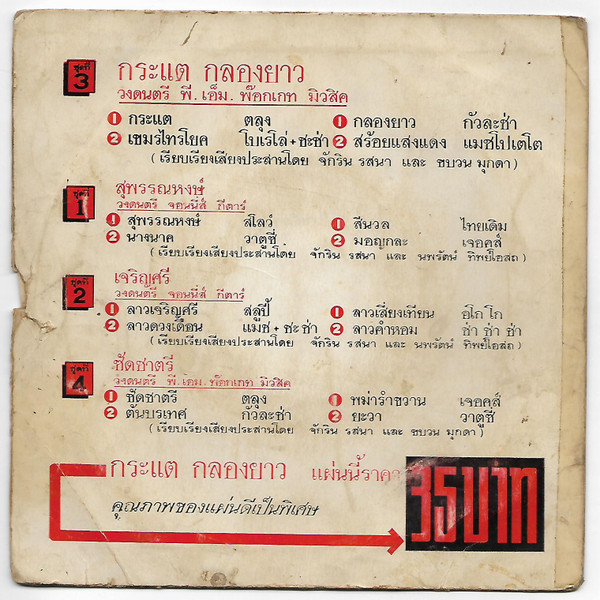 ชุดที่ 3 กระแต กลองยาว
วงดนตรี พี.เอ็ม.พ๊อกเกท มิวสิค
1 กระแต ตลุง 1 กลองยาว กัวละช่า
2 เขมรไทรโยค โบเรโล่+ชะช่า 2 สร้อยแสงแดง แมซโปเตโต
(เรียบเรียงเสียงประสานโดย จักริน รสนา และ ขบวน มุกดา)
ชุดที่ 1 สุพรรณหงษ์
วงดนตรี จอนนี่ส์ กีตาร์
1 สุพรรณหงษ์ สโลว์ 1 สีนวล ไทยเดิม
2 นางนาค วาตูซี่ 2 มอญกละ เจอคส์
(เรียบเรียงเสียงประสานโดย จักริน รสนา และ นพรัตน์ ทิพย์โอสถ)
ชุดที่ 2 เจริญศรี
วงดนตรี จอนนี่ส์ กีตาร์
1 ลาวเจริญศรี สลูปี้ 1 ลาวเสี่ยงเทียน อโก โก
2 ลาวดวงเดือน แมซ+ชะช่า 2 ลาวคำหอม ช่า ช่า ช่า
(เรียบเรียงเสียงประสานโดย จักริน รสนา และ นพรัตน์ ทิพย์โอสถ)
ชุดที่ 4 ซัดชาตรี
วงดนตรี พี.เอม.พ๊อกเกท มิวสิค
1 ซัดชาตรี ตลุง 1 พม่ารำขวาน เจอคส์
2 ต้นบรเทศ กัวละช่า 2 ยะวา วาตูซี่
(เรียบเรียงเสียงประสานโดย จักริน รสนา และ ขบวน มุกดา)
กระแต กลองยาว แผ่นนี้ราคา 35บาท
คุณภาพของแผ่นดีเป็นพิเศษ